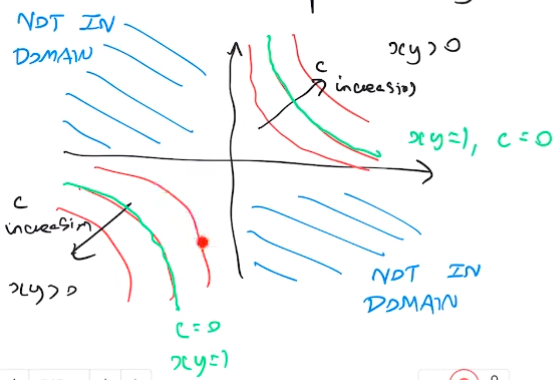 NOT IN
DOMAIN
xy>0
c
increasing
xy=1, c=0
c
increasing
xy>0
NOT IN
DOMAIN
c=0
xy=1